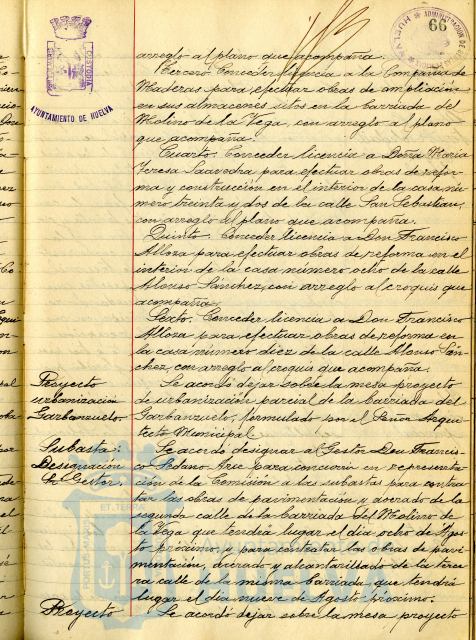 66
AYUNTAMIENTO DE HUELVA
arreglo al plano que acompaña.
Tercero. Conceder licencia a la Compañia de
Maderas para efectuar obras de ampliación
en sus almacenes sitos en la barriada del
Molino de la Vega, con arreglo al plano
que acompaña.
Cuarto. Conceder licencia a Doña Maria
Teresa Saavedra para efectuar obras de refor-
ma y construcción en el interior de la casa nú-
mero treinta y dos de la calle San Sebastian,
con arreglo al plano que acompaña.
Quinto. Conceder licencia a Don Francisco
Alloza para efectuar obras de reforma en el
interior de la casa número ocho de la calle
Alonso Sánchez, con arreglo al croquis que
acompaña.
Sexto. Conceder licencia a Don Francisco
Alloza para efectuar obras de reforma en
la casa número diez de la calle Alonso Sán-
chez, con arreglo al croquis que acompaña.
Proyecto
urbanización
Garbanzuelo.
Se acordó dejar sobre la mesa proyecto
de urbanización parcial de la barriada del
Garbanzuelo, formulado por el Señor Arqui-
tecto Municipal.
Subasta:
Designación
de Gestor.
Se acordó designar al Gestor Don Francis-
co Sedano Arce para concurrir en representa-
ción de la Comisión a las subastas para contra-
tar las obras de pavimentación y acerado de la
segunda calle de la barriada del Molino de
la Vega que tendrá lugar el dia ocho de Agos-
to próximo, y para contratar las obras de pavi-
mentación, acerado y alcantarillado de la terce-
ra calle de la misma barriada que tendrá
lugar el dia nueve de Agosto próximo.
Proyecto
Se acordó dejar sobre la mesa proyecto